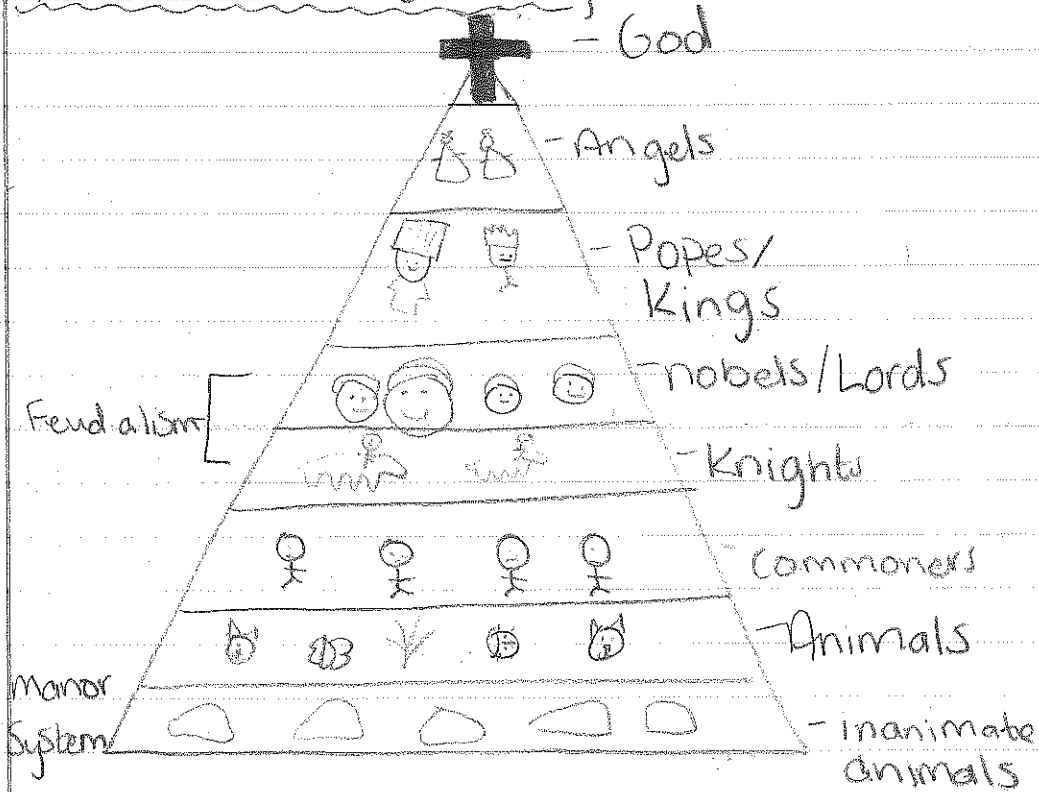 - God
- Angels
- Popes/
Kings
- nobels/Lords
Feudalism
- Knights
- Commoners
- Animals
Manor
System
- inanimate
animals